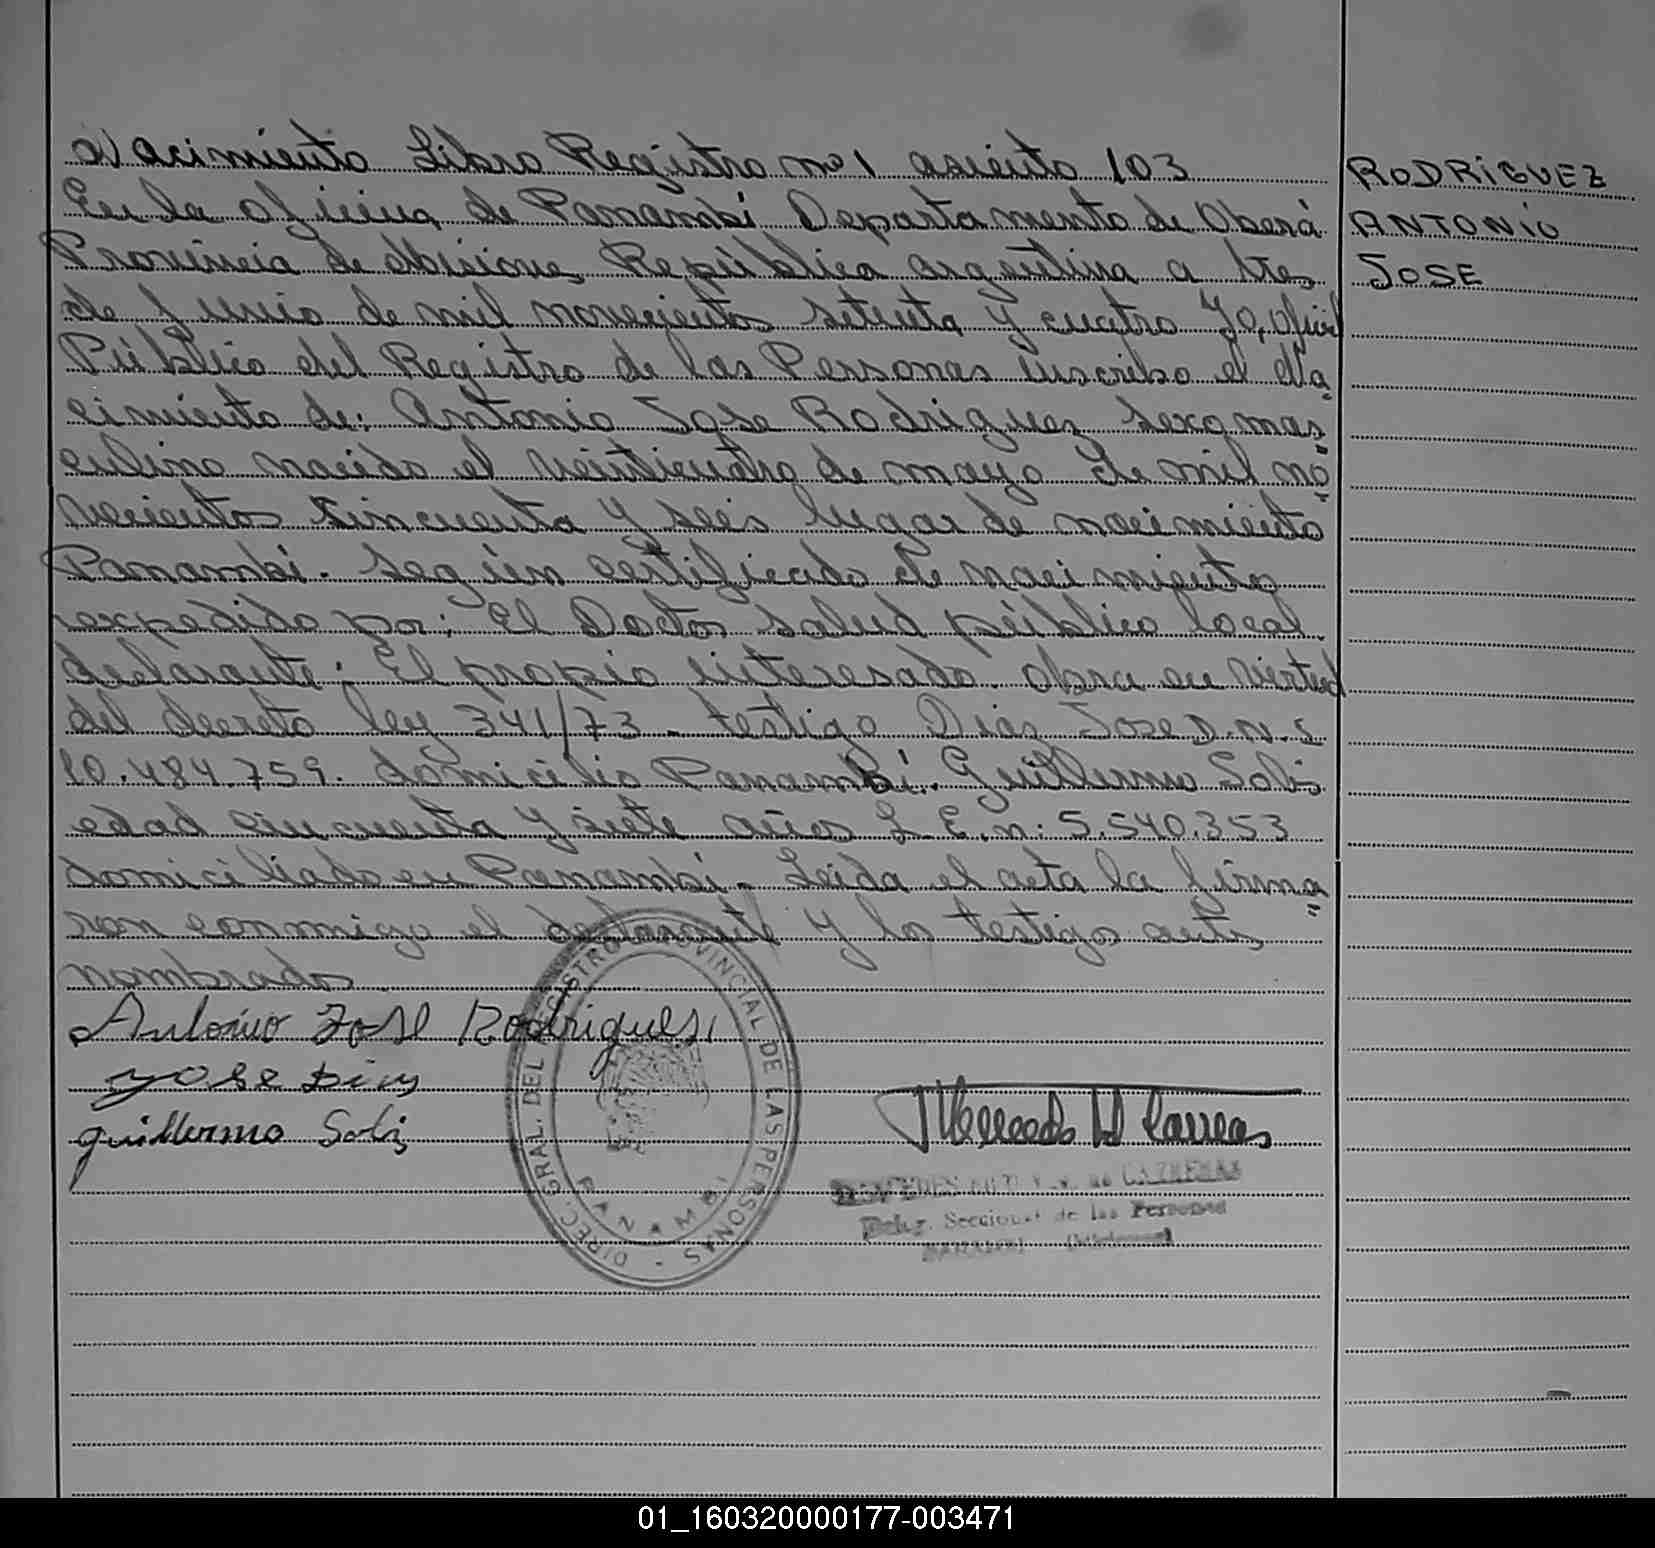 Nacimiento Libro Registro nº 1 asiento 103
RODRIGUEZ
En la oficina de Panambi Departamento de Oberá
ANTONIO
Provincia de Misiones Republica argentina a tres
JOSE
de Junio de mil novecientos setenta y cuatro Yo, Oficial
Público del Registro de las Personas inscribo el Na
cimiento de: Antonio Jose Rodriguez sexo mas
culino nacido el veinticuatro de mayo de mil no
vecientos cincuenta y seis lugar de nacimiento
Panambi. Según certificado de nacimiento
expedido por: El Doctor salud público local
declarante: El propio interesado obra en virtud
del decreto ley 341/73 - testigo Dias Jose D.N.I.
10.484.759. domicilio Panambi. Guillermo Solis
edad cincuenta y siete años L.E.n: 5.540.353
domiciliado en Panambi - Leida el acta la firma
ron conmigo el declarante y los testigos antes
nombrados
Antonio José Rodrigues
Jose Dias
Guillermo Solis
DIREC. GRAL. DEL REGISTRO PROVINCIAL DE LAS PERSONAS -
PANAMBI
Deleg. Seccional de las Personas
PANAMBI (Misiones)
01_160320000177-003471